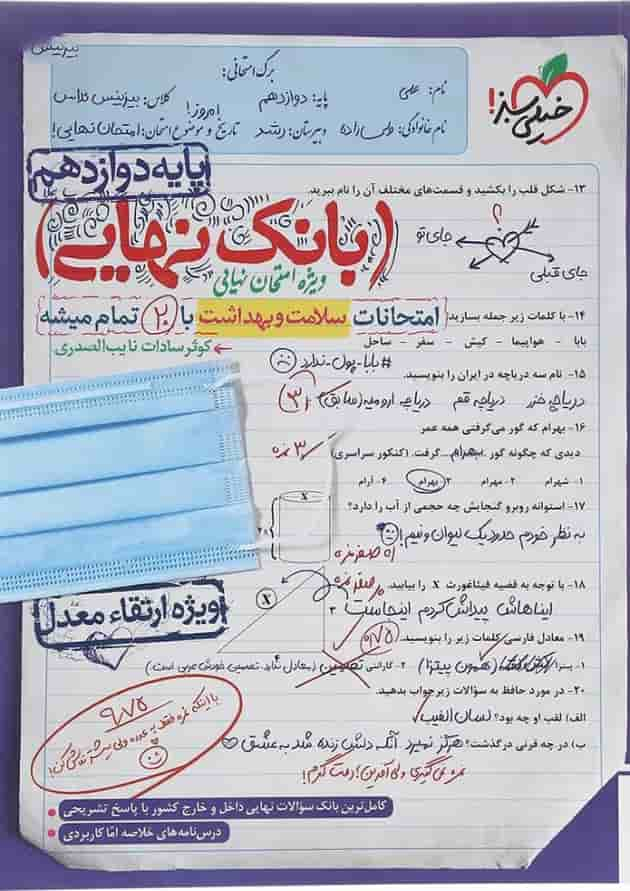 بیزینس
برگ امتحانی:
نام: علی
پایه: دوازدهم
کلاس: بیزینس کلاس
امروز!
نام خانوادگی: ولی زاده
دبیرستان: رشد
تاریخ و موضوع امتحان: امتحان نهایی!
خیلی سبز!
پایه دوازدهم
۱۳- شکل قلب را بکشید و قسمت‌های مختلف آن را نام ببرید.
(بانک نهایی)
ویژه امتحان نهایی
؟
جای تو
جای قبلی
۱۴- با کلمات زیر جمله بسازید:
امتحانات سلامت و بهداشت با ۲۰ تمام میشه
بابا - هواپیما - کیش - سفر - ساحل
کوثر سادات نایب‌الصدری
#بابا-پول-ندارد
۱۵- نام سه دریاچه در ایران را بنویسید.
دریاچه خزر دریاچه قم دریاچه ارومیه (سابق)
۳
۱۶- بهرام که گور می‌گرفتی همه عمر
دیدی که چگونه گور ..بهرام.. گرفت. (کنکور سراسری)
۳ نمره
۱- شهرام ۲- مهرام ۳- بهرام ۴- آرام
۱۷- استوانه روبرو گنجایش چه حجمی از آب را دارد؟
X
به نظر خودم حدود یک لیوان و نیم!
۱۸- با توجه به قضیه فیثاغورث X را بیابید.
X
ایناهاش پیداش کردم اینجاست
ویژه ارتقاء معدل
۱۹- معادل فارسی کلمات زیر را بنویسید.
۰/۷۵
۱. پیتزا (همون پیتزا) ۲- گارانتی تضمین (معادل نباید تضمین خودش عربی است)
۲۰- در مورد حافظ به سؤالات زیر جواب بدهید.
الف) لقب او چه بود؟ لسان الغیب
ب) در چه قرنی درگذشت؟ هرگز نمیرد آنکه دلش زنده شد به عشق
۹/۷۵
نمره نمی‌گیری ولی آفرین! دمت گرم!
کامل‌ترین بانک سؤالات نهایی داخل و خارج کشور با پاسخ تشریحی
درس‌نامه‌های خلاصه امّا کاربردی